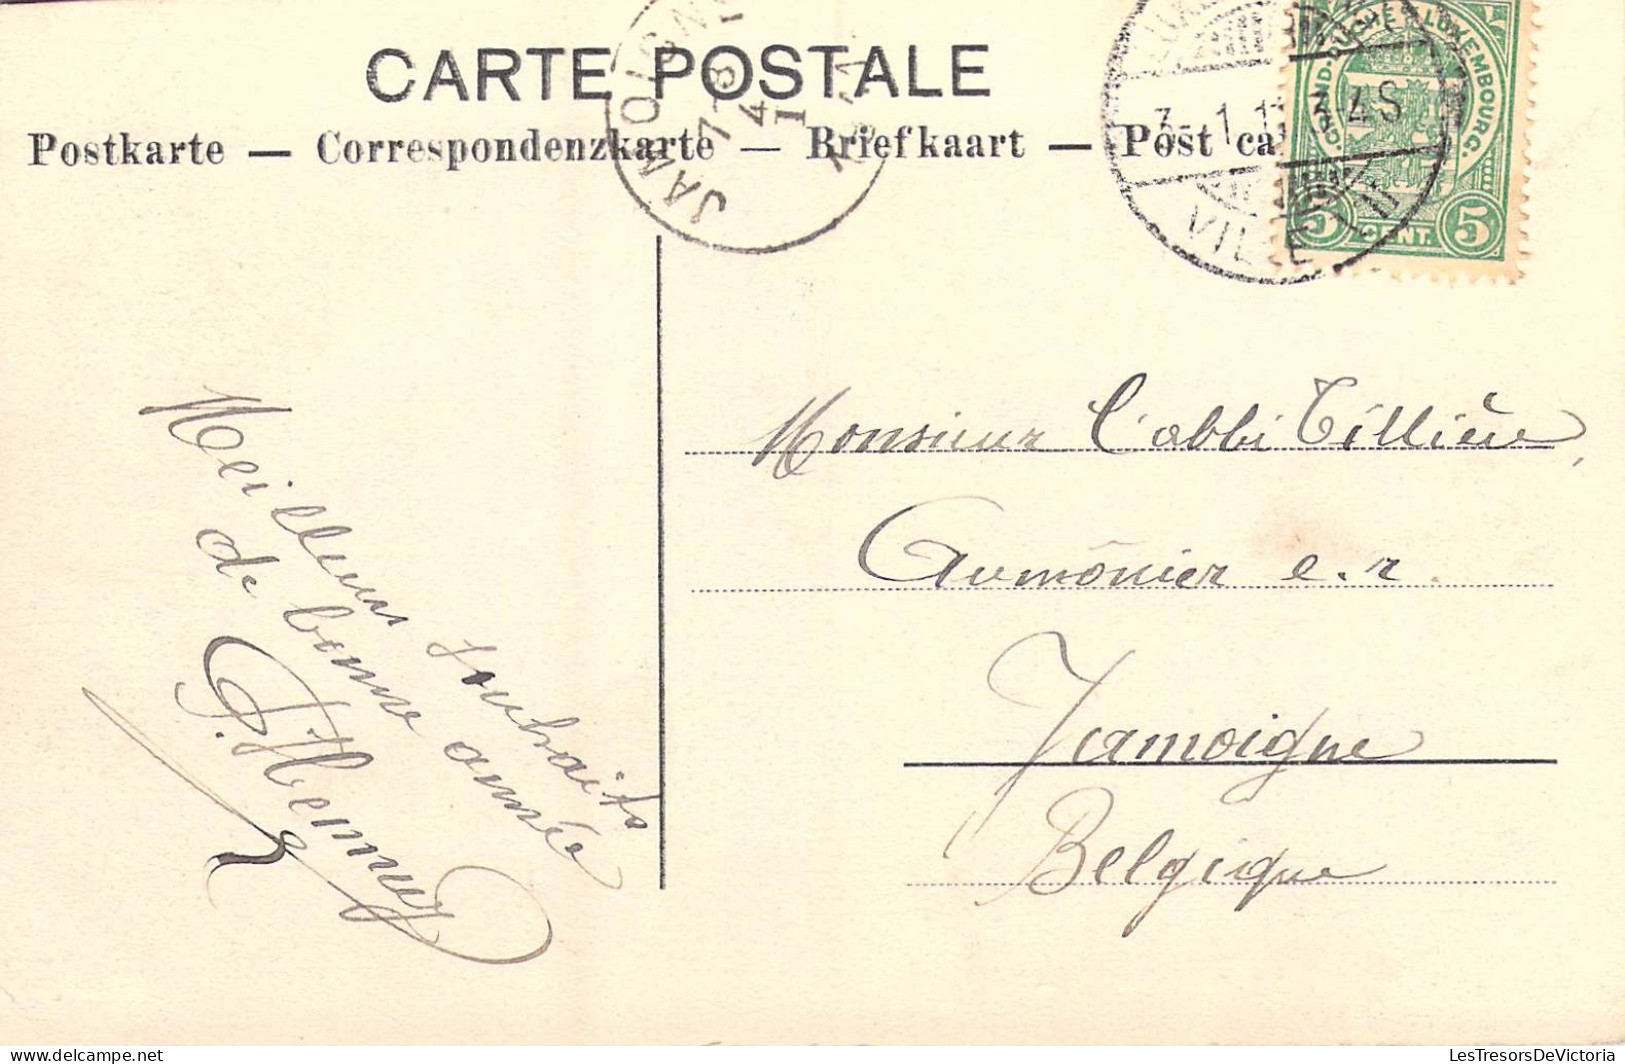 CARTE POSTALE
Postkarte — Correspondenzkarte — Briefkaart — Post ca
JAMOIGNE
7-8
4
1
3.1.11 4S
VILLE
GRAND-DUCHÉ DE LUXEMBOURG.
5 CENT. 5
Meilleurs souhaits
de bonne année
Monsieur l'abbé Tillière,
Aumônier e.r.
Jamoigne
Belgique
LesTresorsDeVictoria